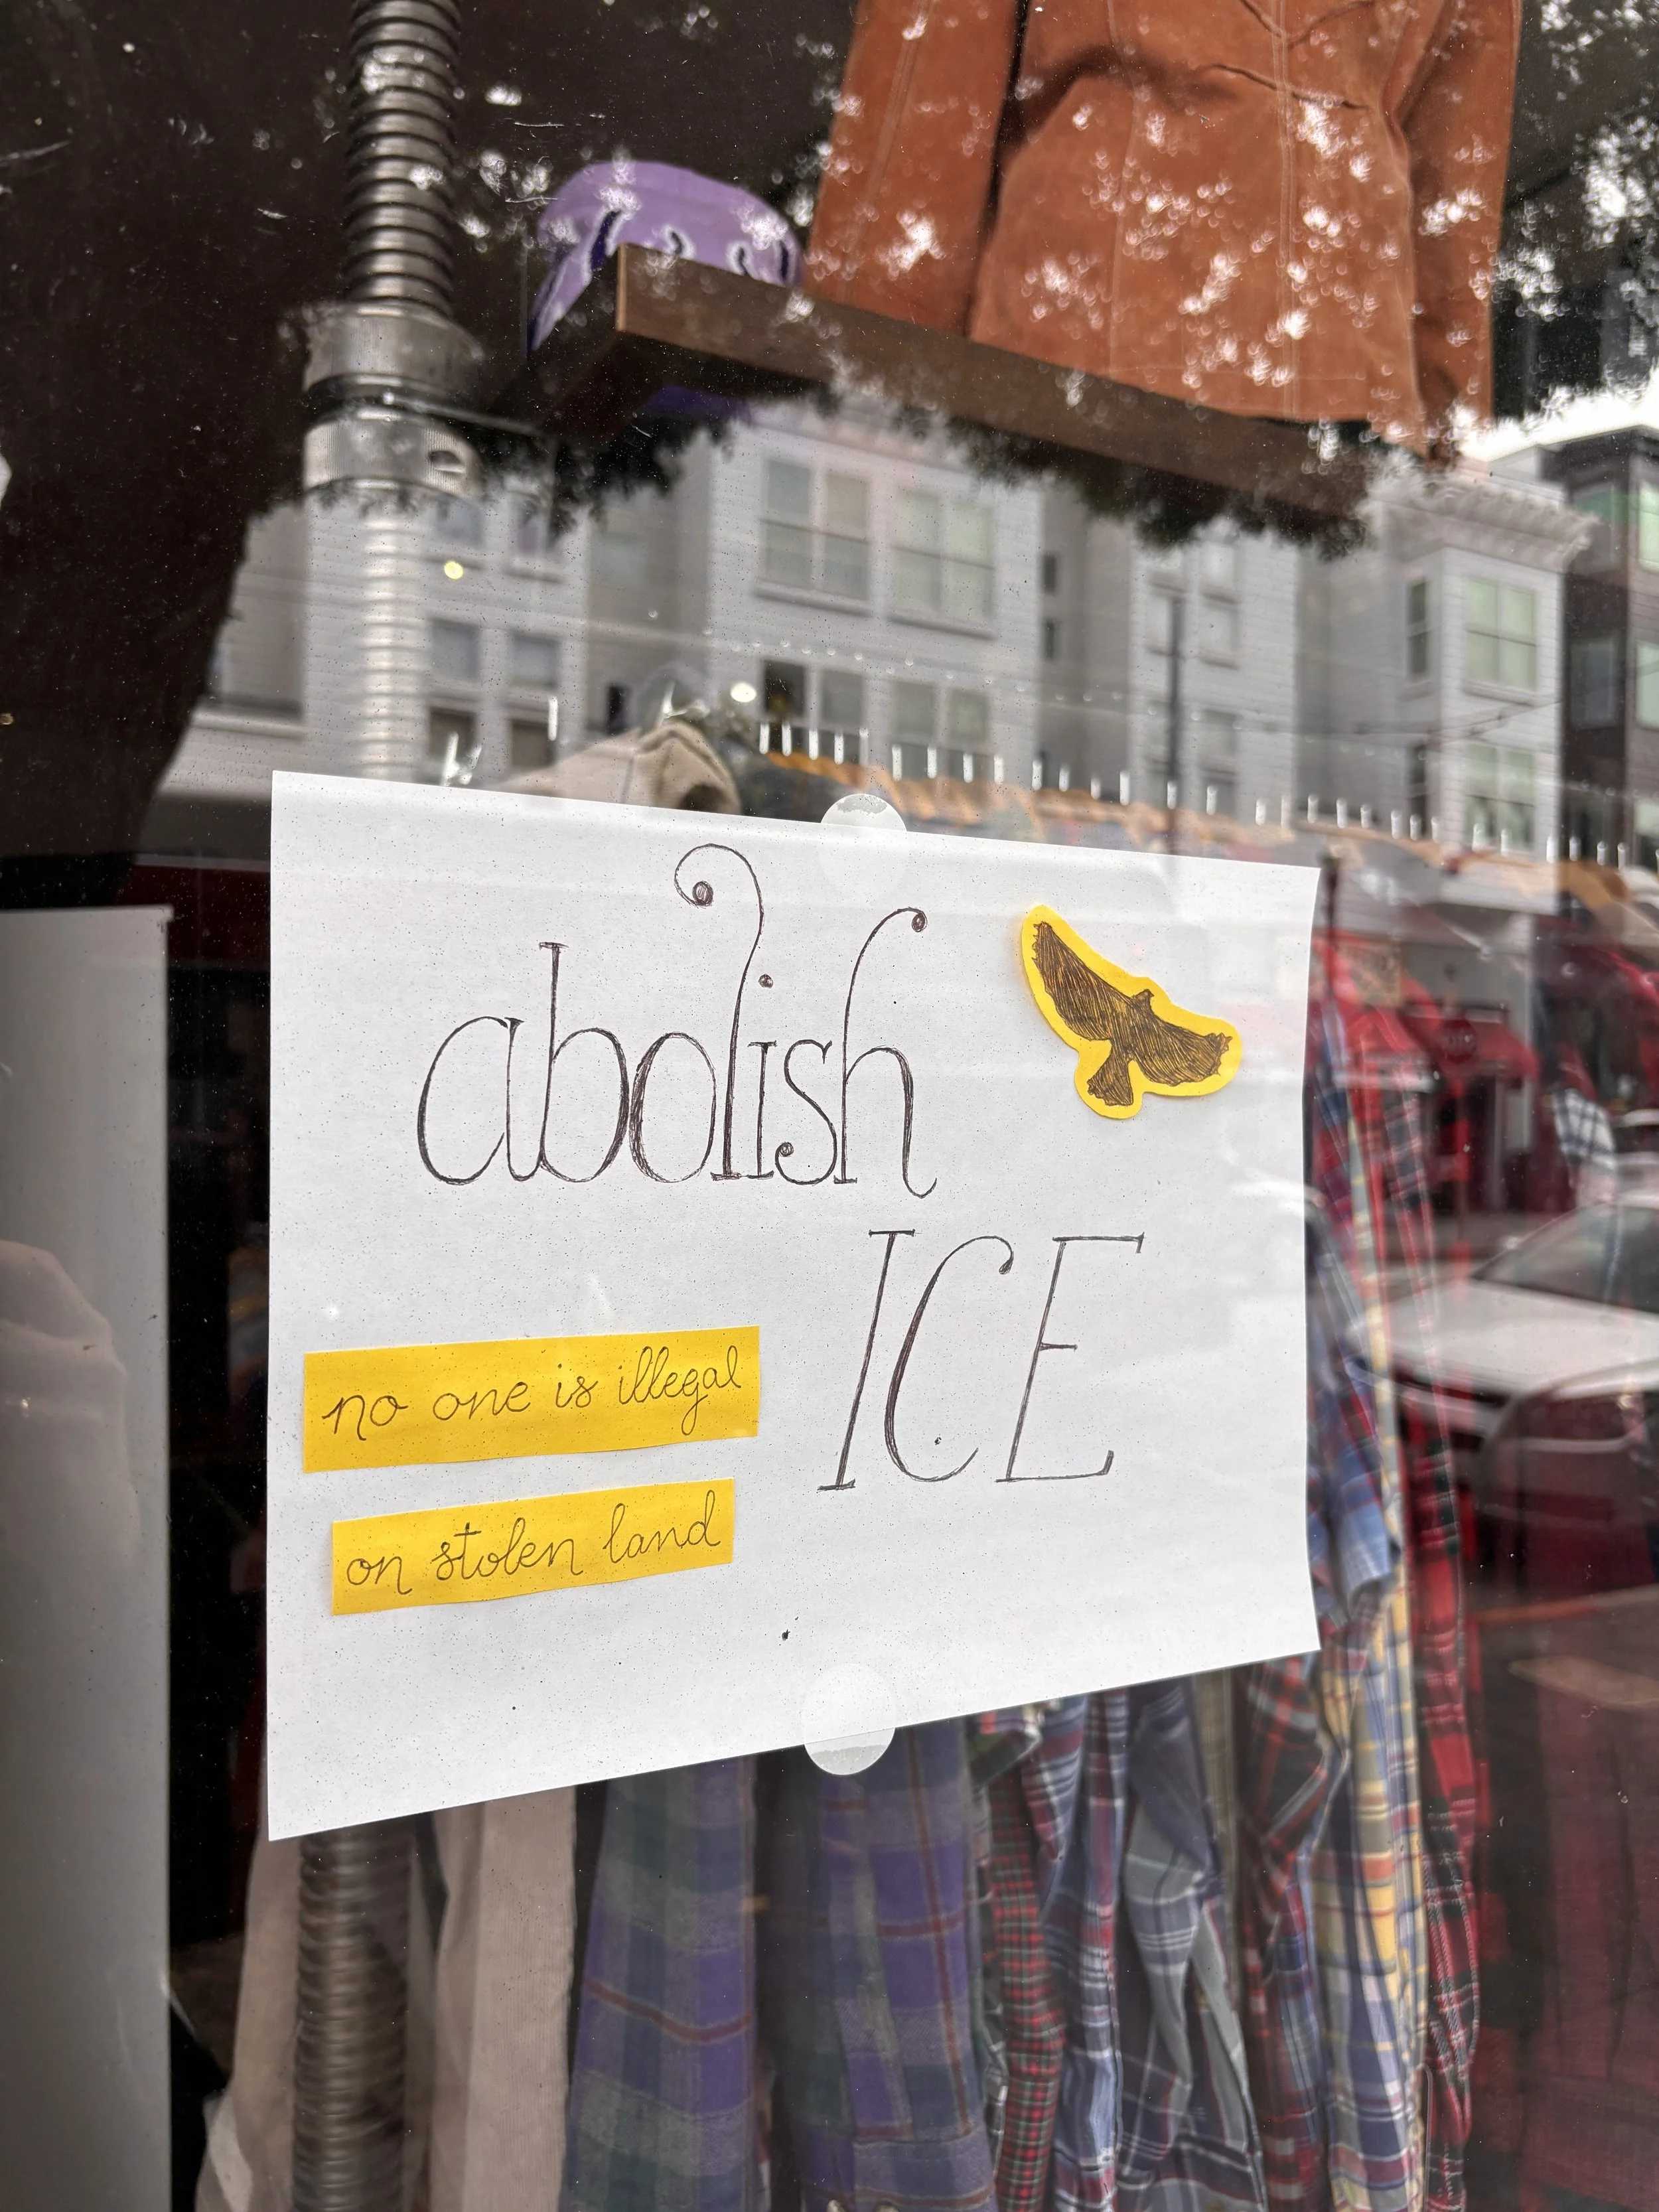 abolish
ICE
no one is illegal
on stolen land